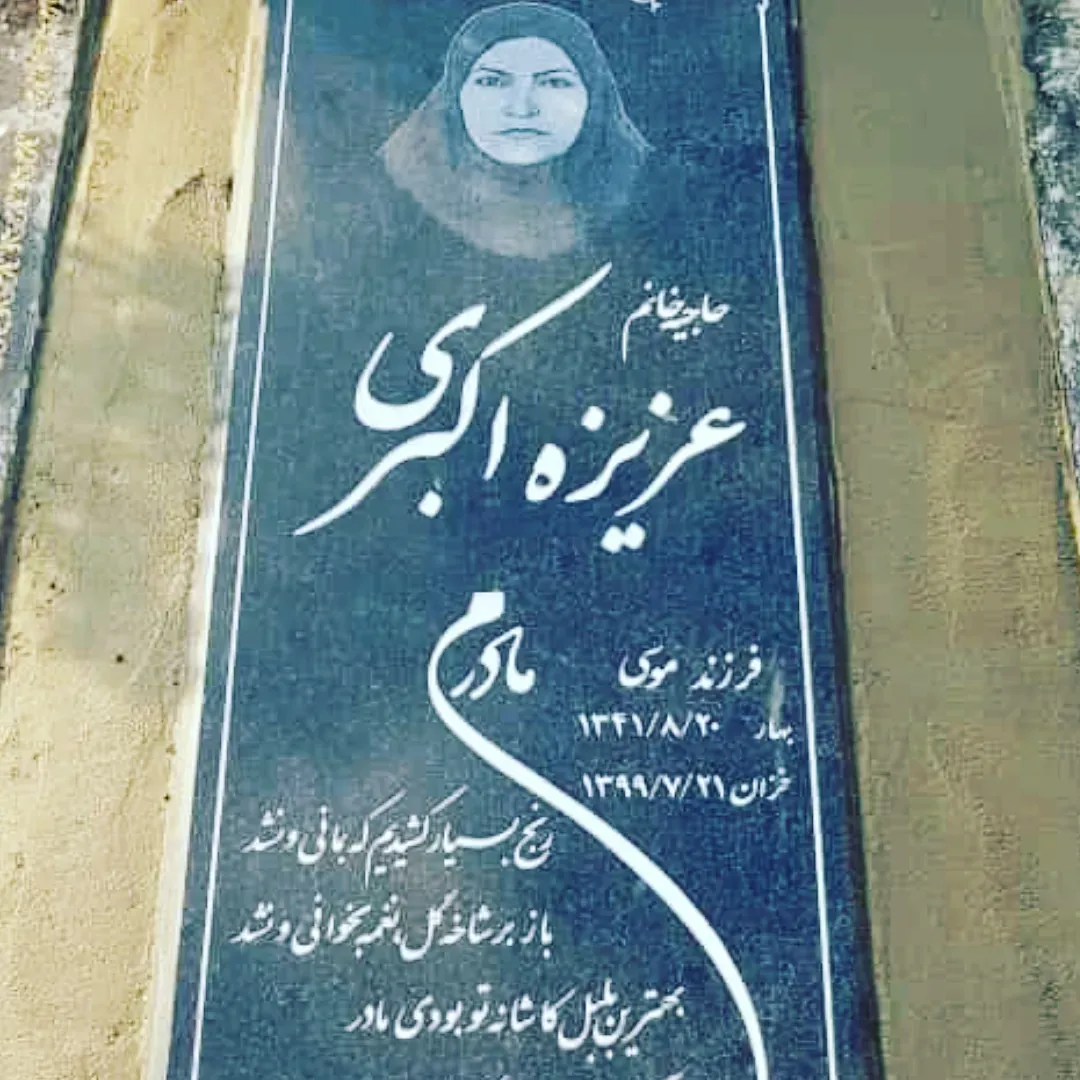 حاجیه خانم
عزیزه اکبری
مادرم
فرزند موسی
بهار ۱۳۴۱/۸/۲۰
خزان ۱۳۹۹/۷/۲۱
رنج بسیار کشیدیم که بمانی و نشد
باز بر شاخه گل، نغمه بخوانی و نشد
بهترین بلبل کاشانه تو بودی مادر